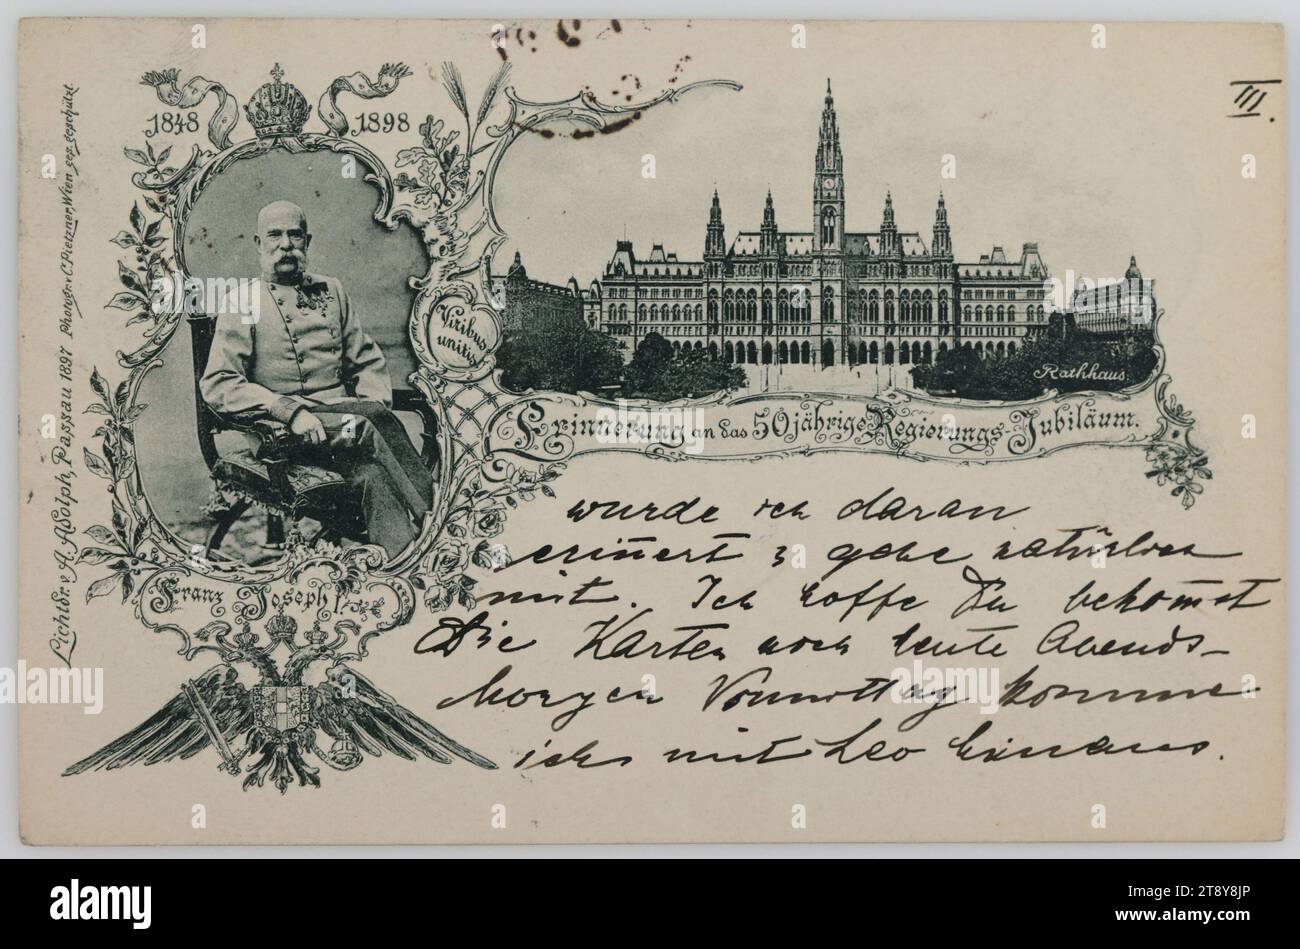 III.
1848 1898
Viribus
unitis
Rathhaus.
Erinnerung an das 50jährige Regierungs-Jubiläum.
Franz Joseph I.
Lichtdr. v. A. Adolph, Passau 1897 Photogr. v. C. Pietzner, Wien ges. geschützt.
wurde ich daran
erinnert & gehe natürlich
mit. Ich hoffe Du bekom̅st
Die Karten noch heute Abends-
Morgen Vormittag komme
ich mit Leo hinaus.
alamy
Image ID: 2T8Y8JP
www.alamy.com